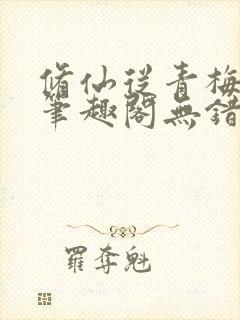 脩仙從青梅
筆趣閣無錯
羅奪魁